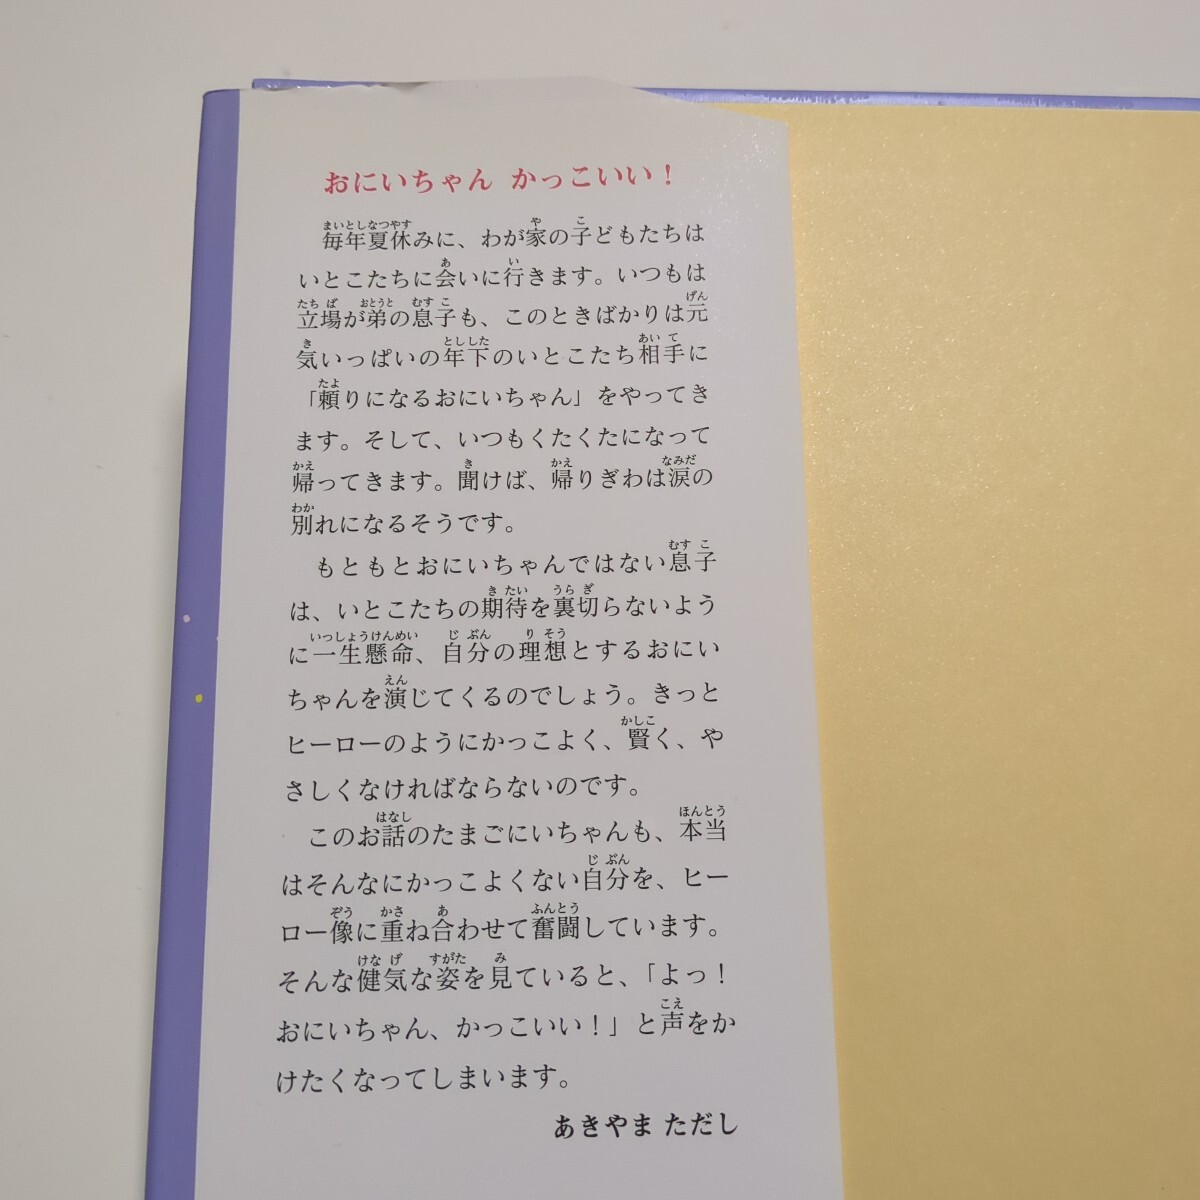 おにいちゃん かっこいい！
毎年夏休みに、わが家の子どもたちは
いとこたちに会いに行きます。いつもは
立場が弟の息子も、このときばかりは元
気いっぱいの年下のいとこたち相手に
「頼りになるおにいちゃん」をやってき
ます。そして、いつもくたくたになって
帰ってきます。聞けば、帰りぎわは涙の
別れになるそうです。
もともとおにいちゃんではない息子
は、いとこたちの期待を裏切らないよう
に一生懸命、自分の理想とするおにい
ちゃんを演じてくるのでしょう。きっと
ヒーローのようにかっこよく、賢く、や
さしくなければならないのです。
このお話のたまごにいちゃんも、本当
はそんなにかっこよくない自分を、ヒー
ロー像に重ね合わせて奮闘しています。
そんな健気な姿を見ていると、「よっ！
おにいちゃん、かっこいい！」と声をか
けたくなってしまいます。
あきやま ただし